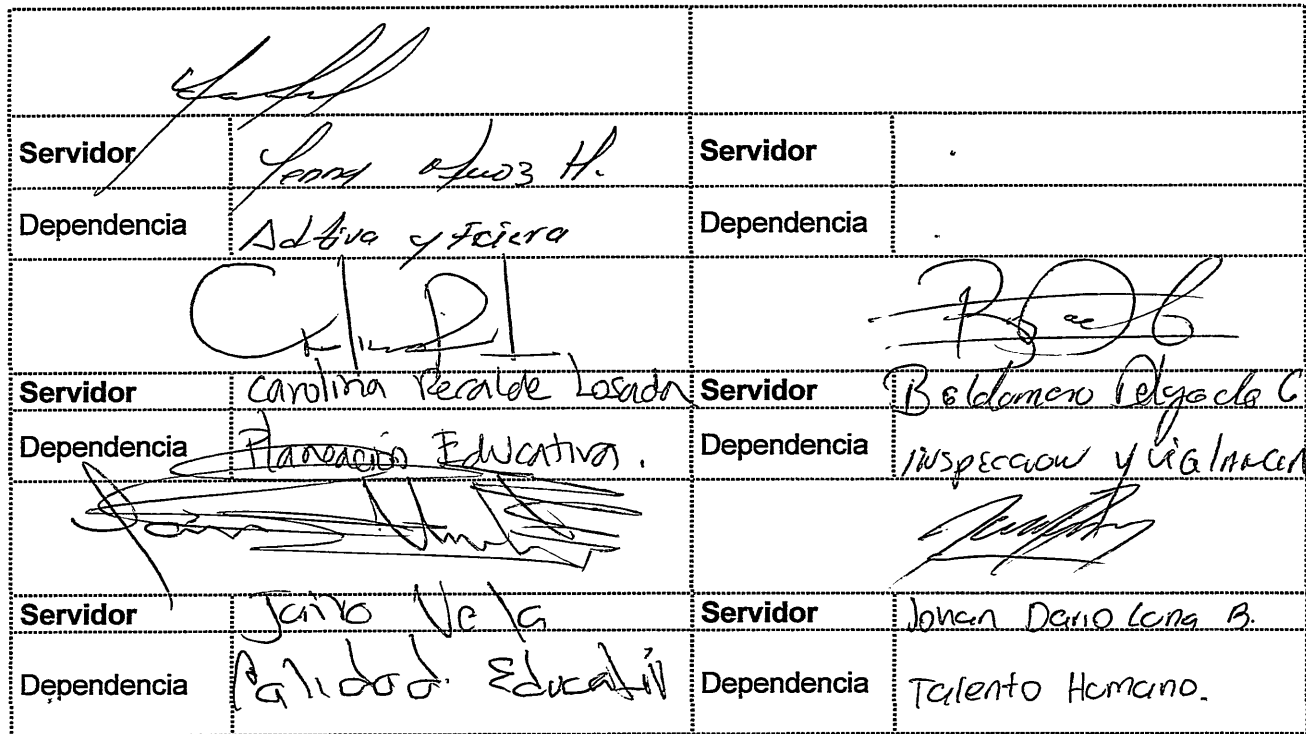 Servidor Yenny Muñoz H. Servidor
Dependencia Adtiva y Fciera Dependencia
Servidor Carolina Recalde Losada Servidor Baldomero Delgado C
Dependencia Planeación Educativa. Dependencia INSPECCION Y VIGILANCIA
Servidor Jairo Vela Servidor Johan Dario Luna B.
Dependencia Calidad Educativ Dependencia Talento Humano.